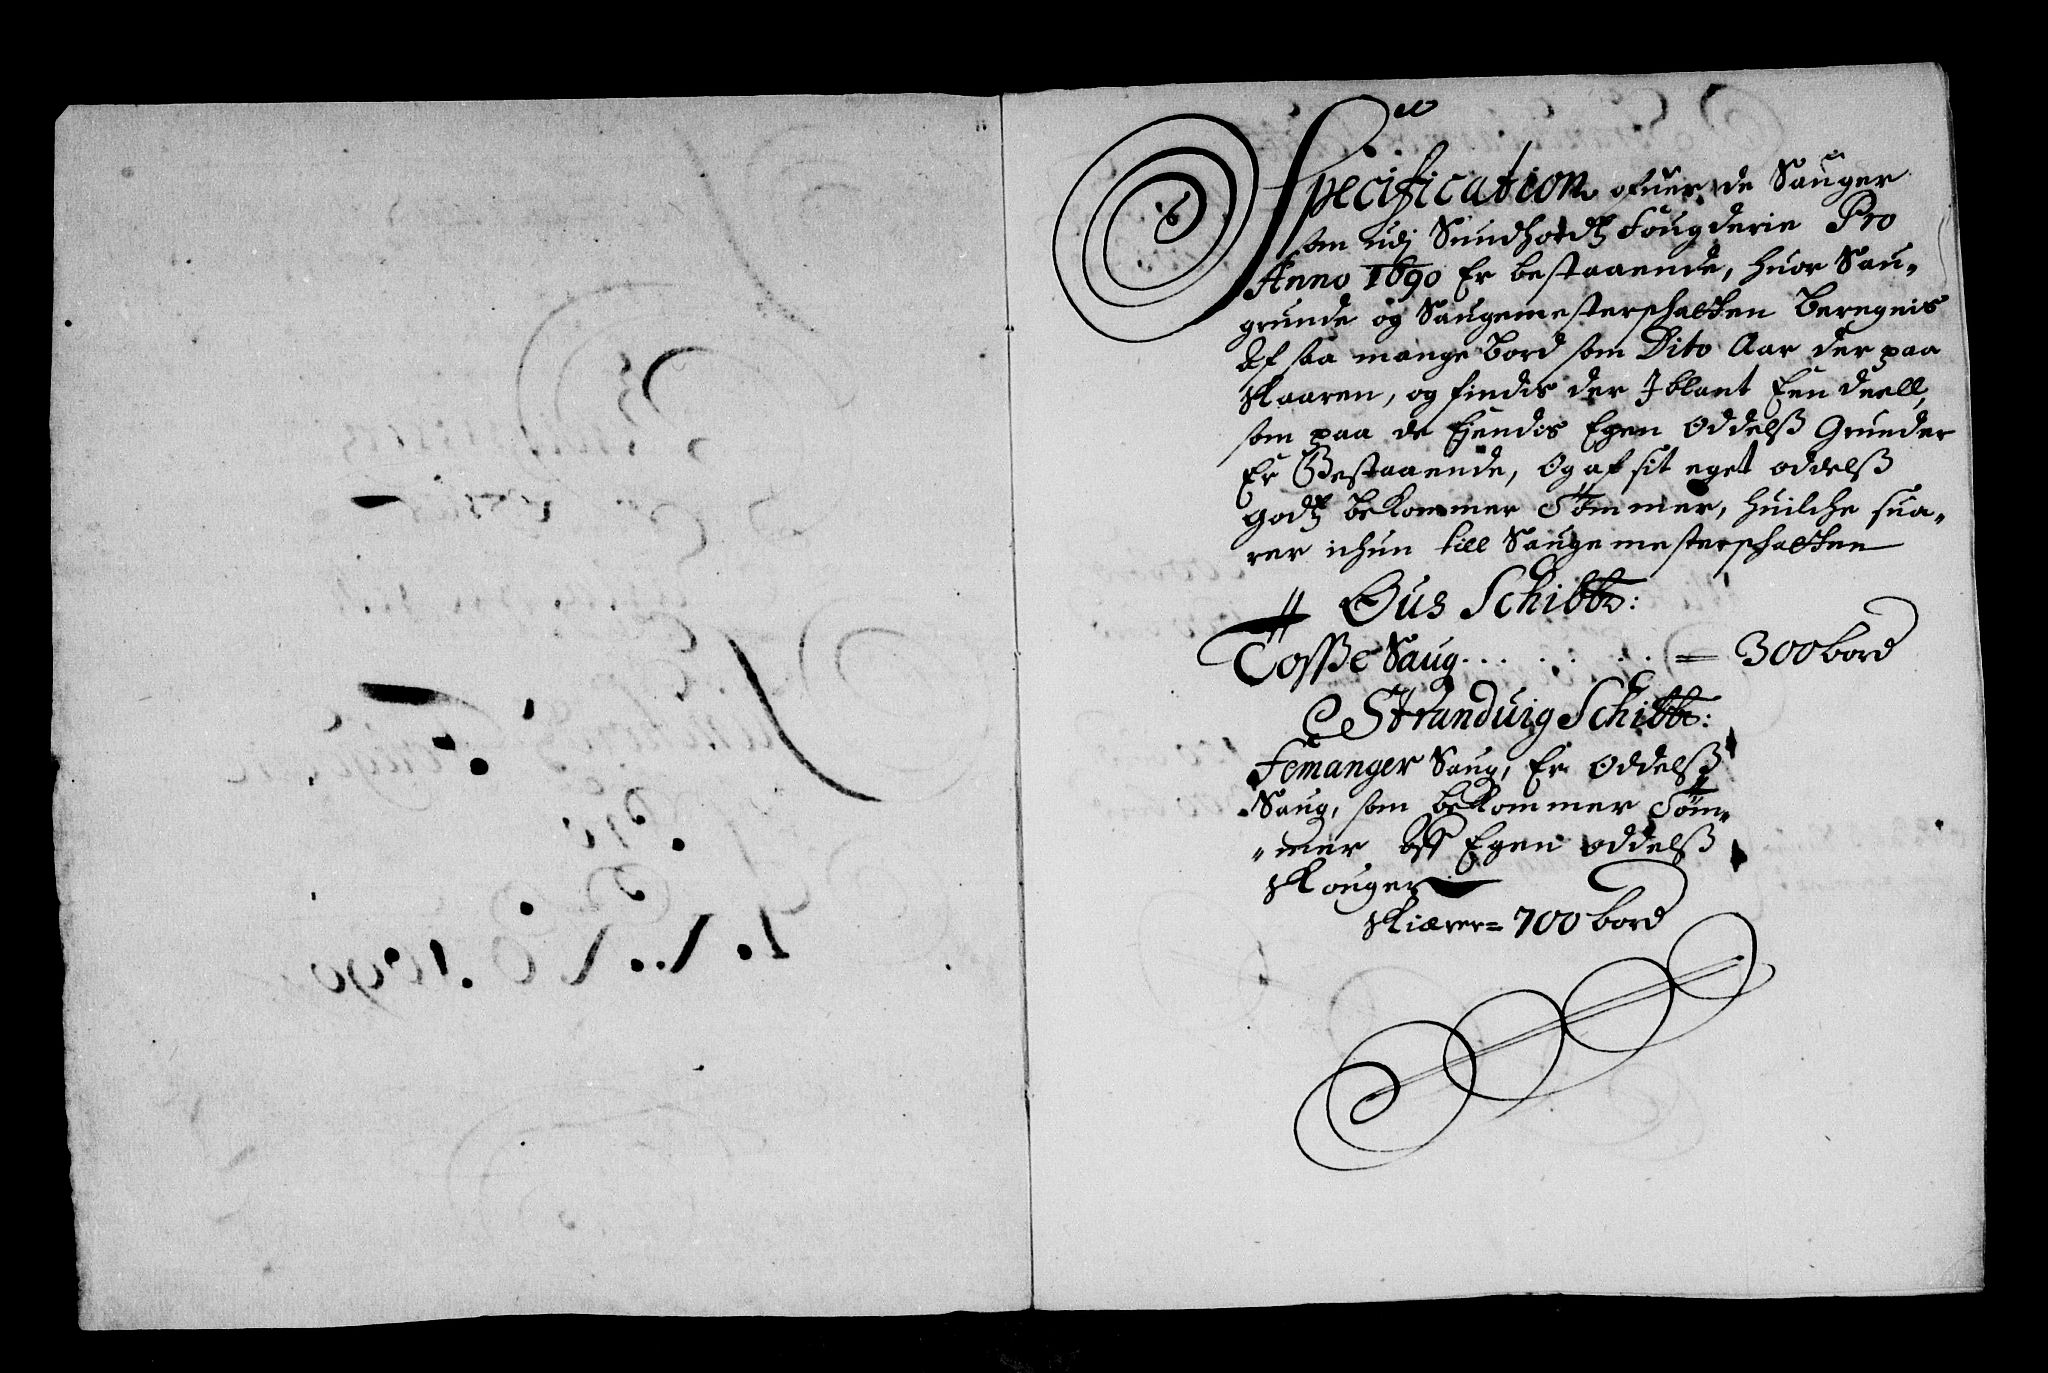 Specification ofuer de Sauger
som udj Sundhordtz Fougderie Pro
Anno 1690 Er bestaaende, huor Sau-
grunde og Saugemesterschatten Beregnis
Af saa mange Bord som Dito Aar der paa
skaaren, og findis der Jblant Een deell,
som paa de Ejendis Egen Oddelß Grunder
Er Bestaaende, Og af sit eget oddelß
Godtz bekommer Tømmer, huilche sua-
rer ichun till Saugemesterschatten
Øus Schibbr:
Tosße Saug . . . . . . = 300 bord
Stranduig Schibbr:
Femanger Saug, Er Oddelß
Saug, som bekommer Tøm-
mer Aff Egen oddelß
skouger
skiærer = 700 bord